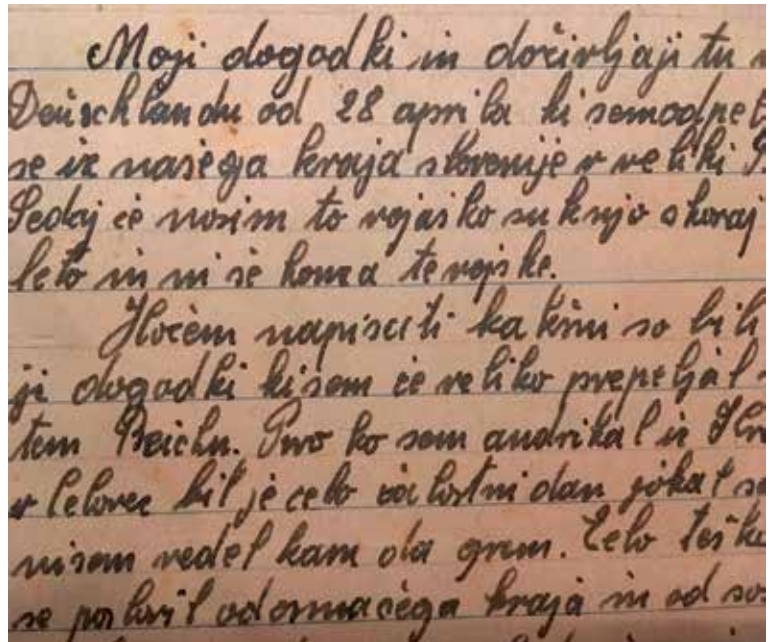 Moji dogodki in doživljaji tu v
Deüschlandu od 28 aprila ki semodpet
se iz našega kraja slovenije v veliki
Sedaj že nosim to vojaško suknjo skoraj
leto in ni še konca te vojske.
Hočem napisati kakšni so bili
ji dogodki kisem že veliko prepeljal
tem Reichu. Prvo ko sem andrikal iz
v Celovec bil je celo žalostni dan jokal se
nisem vedel kam da grem. Celo teško
se poslovil oddomačega kraja in od sos